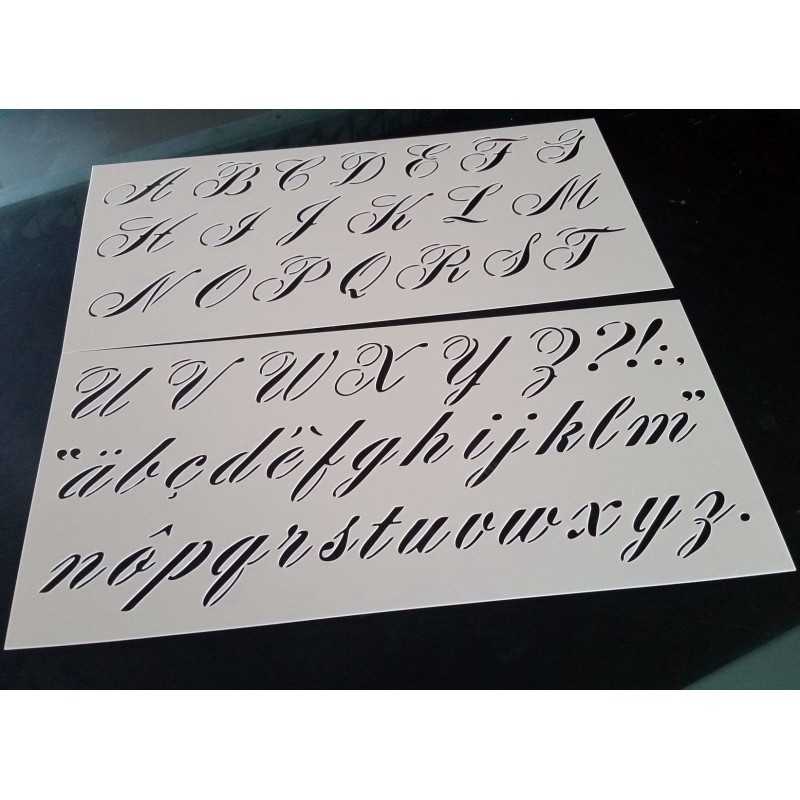 A B C D E F G
H I J K L M
N O P Q R S T
U V W X Y Z ? ! : ,
" ä b ç d ë̀ f g h i j k l m "
n ô p q r s t u v w x y z .